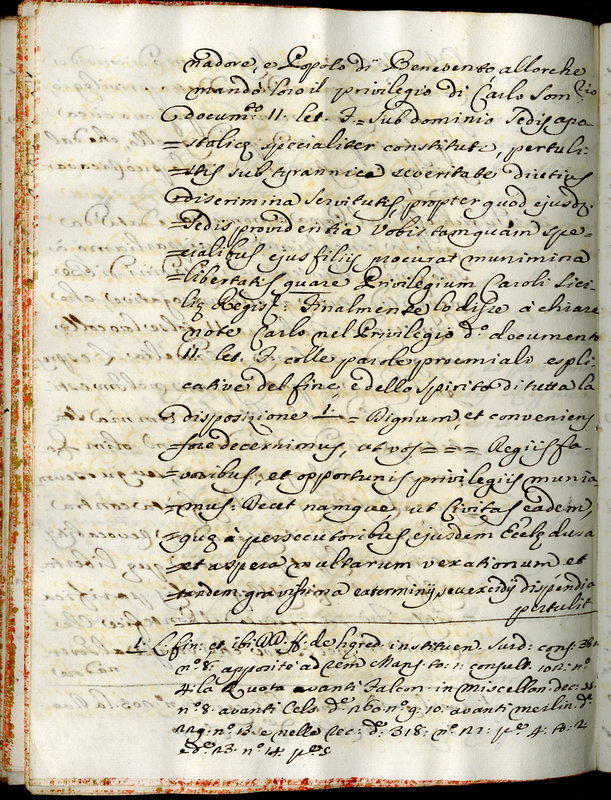 nadore, e Popolo di Benevento allorche
mandò loro il privilegio di Carlo Som.rio
docum.to 11. let. I = sub dominio Sedis apo
=stolicę specialiter constituti, pertuli=
=stis sub tyrannica severitate diutius
discrimina servitutis, propter quod ejusd.
=Sedis providentia vobis tamquam spe=
=cialibus ejus filijs procurat munimina
=libertatis, quare Privilegium Caroli Sici=
lię Regis: Finalmente lo disse à chiare
note Carlo nel Privilegio d.o documento
11. let. I. colle parole proemiali espli=
cative del fine, e dello spirito di tutta la
disposizione 1. = Dignum, et conveniens
fore decernimus, ut vos = = = Regiis fa=
=voribus, et opportunis privilegiis munia
mus: Decet namque, ut Civitas eadem,
=quę à persecutoribus ejusdem Ecclę dura
=et aspera multarum vexationum et
=tandem gravissima exterminij seu excidij dispendia
pertulit
1. L. fin: et ibi DD. ff: de hęred. instituen. Surd: cons: 381.
n.o 8. apposite ad rem Mans. to: 1: consult. 102: n.o
4. la Ruota avanti Falcon. in Miscellan. dec: 35.
n.o 8. avanti Cels. d.o 260. n.o 9. 10: avanti Merlin. d.o
229. n.o 13. e nelle rec: d.o 318: n.o 21: p.e 4. to: 2
e d.o 23. n.o 14. p.e 5